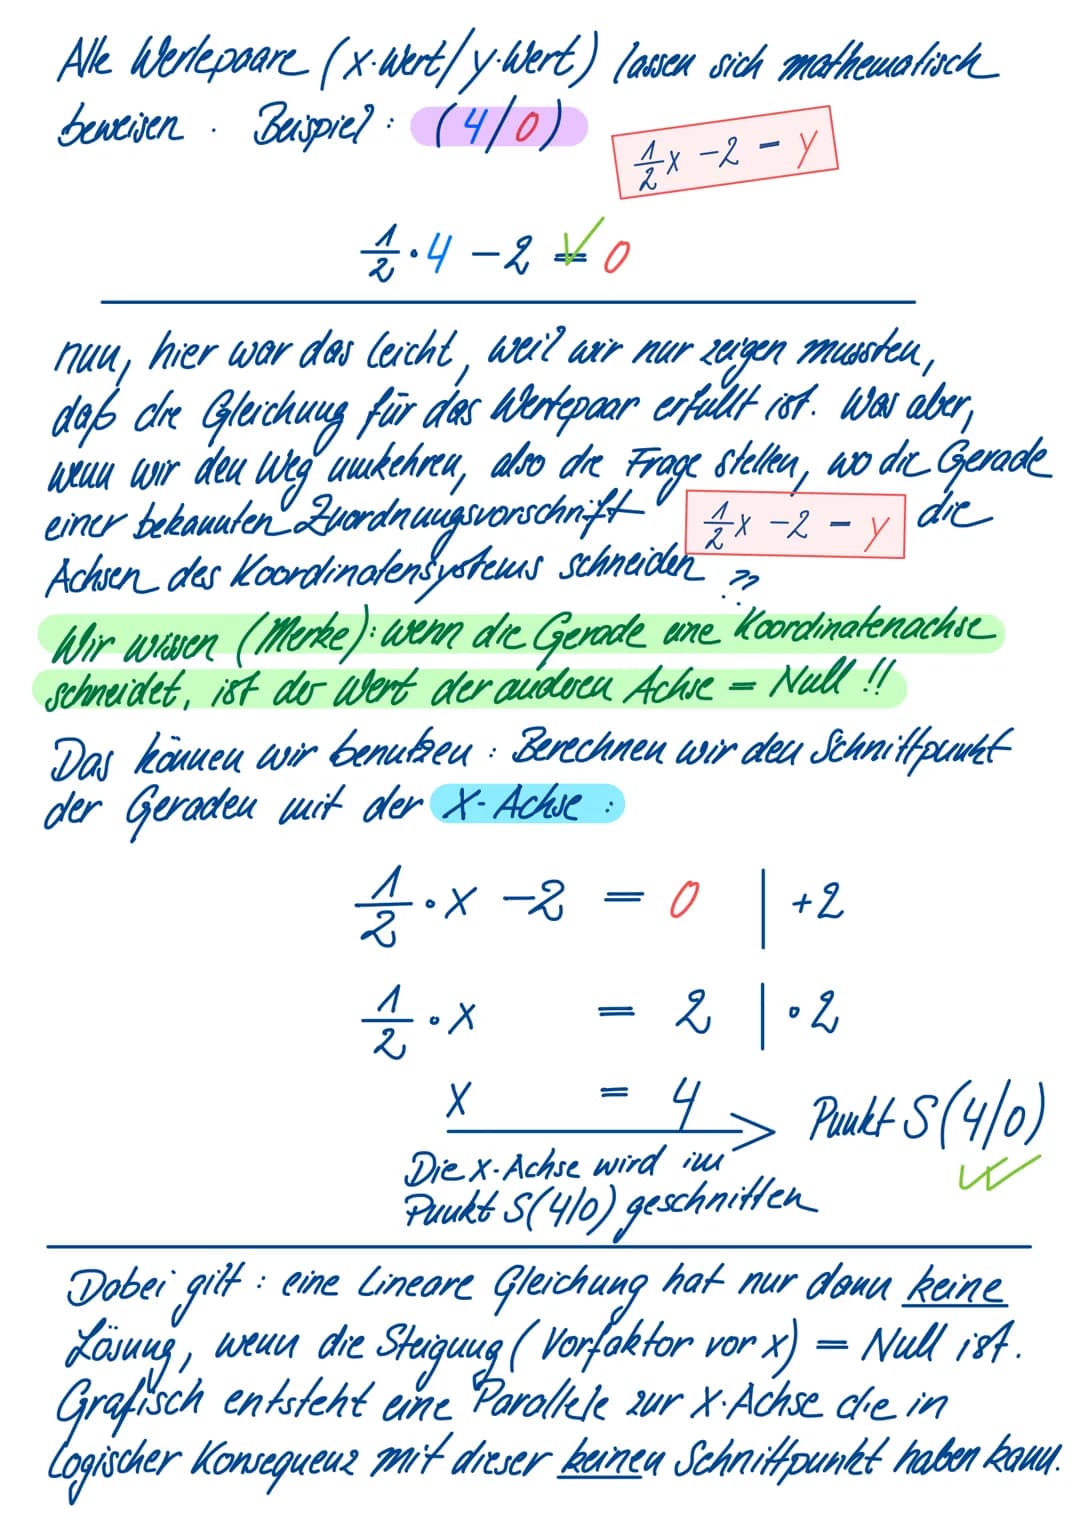 Alle Wertepaare (x-Wert/y-Wert) lassen sich mathematisch
beweisen. Beispiel: (4/0)
1/2 x - 2 = y
1/2 · 4 - 2 = 0
nun, hier war das leicht, weil wir nur zeigen mussten,
daß die Gleichung für das Wertepaar erfüllt ist. Was aber,
wenn wir den Weg umkehren, also die Frage stellen, wo die Gerade
einer bekannten Zuordnungsvorschrift 1/2 x - 2 = y die
Achsen des Koordinatensystems schneiden ??
Wir wissen (Merke): wenn die Gerade eine Koordinatenachse
schneidet, ist der Wert der anderen Achse = Null !!
Das können wir benutzen: Berechnen wir den Schnittpunkt
der Geraden mit der X-Achse:
1/2 · x - 2 = 0 | +2
1/2 · x = 2 | · 2
x = 4 Punkt S(4/0)
Die x-Achse wird im
Punkt S(4/0) geschnitten
Dabei gilt: eine Lineare Gleichung hat nur dann keine
Lösung, wenn die Steigung (Vorfaktor vor x) = Null ist.
Grafisch entsteht eine Parallele zur X-Achse die in
logischer Konsequenz mit dieser keinen Schnittpunkt haben kann.